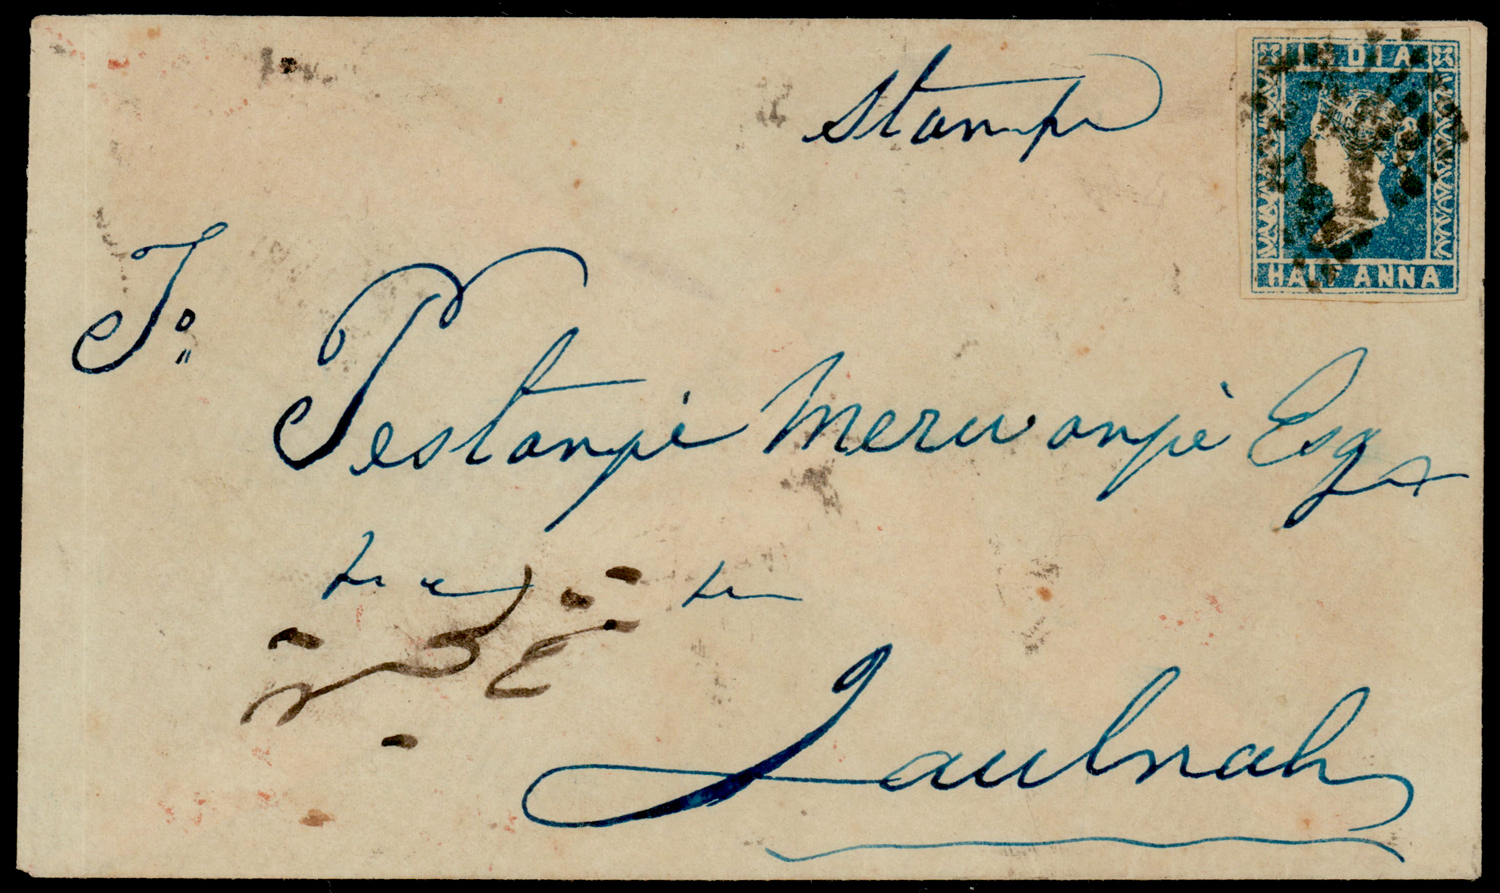 Stamp
INDIA
HALF ANNA
To
Pestanji Merwanji Esqr
Jaulnah